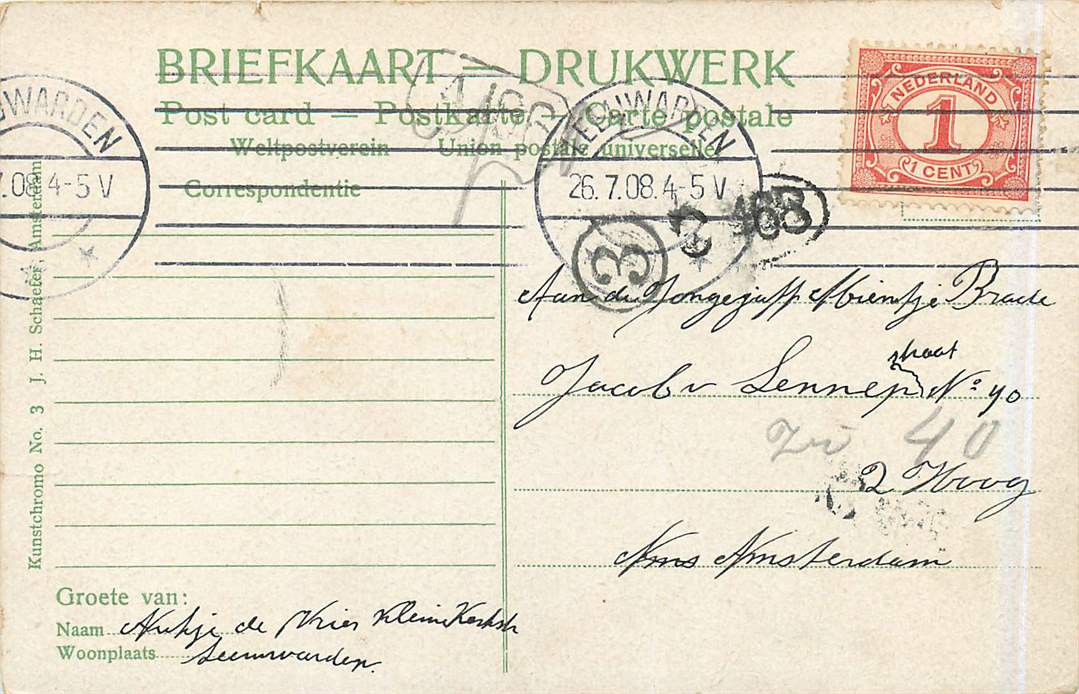 BRIEFKAART = DRUKWERK
Post card — Postkarte — Carte postale
Weltpostverein Union postale universelle
Correspondentie
LEEUWARDEN
26.7.08.4-5 V
UWARDEN
7.08.4-5 V
NEDERLAND
1
1 CENT
3
2
Aan de Jongejuff Mientje Brade
Jacob v Lennep straat No 40
Zie 40
2 Hoog
Ams Amsterdam
Kunstchromo No. 3 J. H. Schaefer, Amsterdam
Groete van:
Naam Aukje de Vries Klein Kerkstr
Woonplaats Leeuwarden